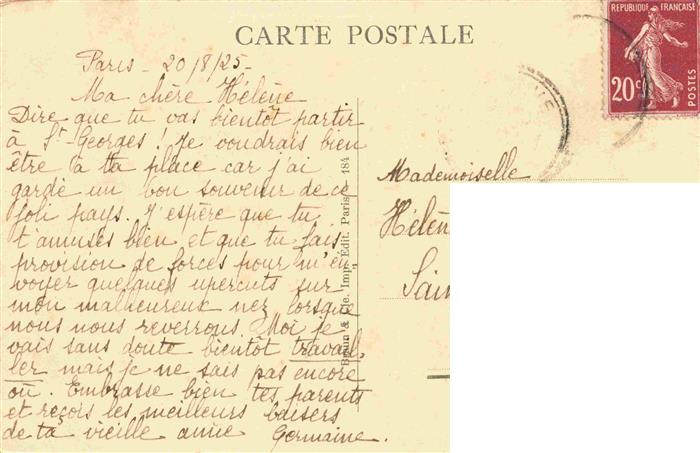 CARTE POSTALE
RÉPUBLIQUE FRANÇAISE
20c
POSTES
Paris - 20/8/25 -
Ma chère Hélène
Dire que tu vas bientôt partir
à St Georges ! Je voudrais bien
être à ta place car j'ai
gardé un bon souvenir de ce
joli pays. J'espère que tu
t'amuses bien et que tu fais
provision de forces pour m'en
voyer quelques upercuts sur
mon malheureux nez lorsque
nous nous reverrons. Moi je
vais sans doute bientôt travail-
ler mais je ne sais pas encore
où. Embrasse bien tes parents
et reçois les meilleurs baisers
de ta vieille amie Germaine.
& Cie. Imp. Edit. Paris 184
Mademoiselle
Hélèn
Sain